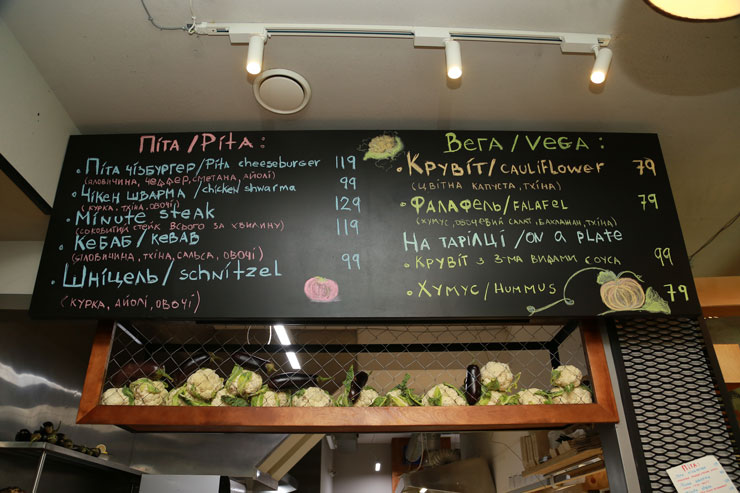 Піта / Pita :
• Піта чізбургер / Pita cheeseburger 119
(яловичина, чеддер, сметана, айолі)
• Чікен шварма / chicken shwarma 99
(курка, тхіна, овочі)
• Minute steak 129
(соковитий стейк всього за хвилину)
• Кебаб / кевав 119
(яловичина, тхіна, сальса, овочі)
• Шніцель / schnitzel 99
(курка, айолі, овочі)
Вега / Vega :
• Крувіт / cauliflower 79
(цвітна капуста, тхіна)
• Фалафель / falafel 79
(хумус, овочевий салат, баклажан, тхіна)
На тарілці / on a plate
• Крувіт з 3-ма видами соуса 99
• Хумус / Hummus 79
Піта :